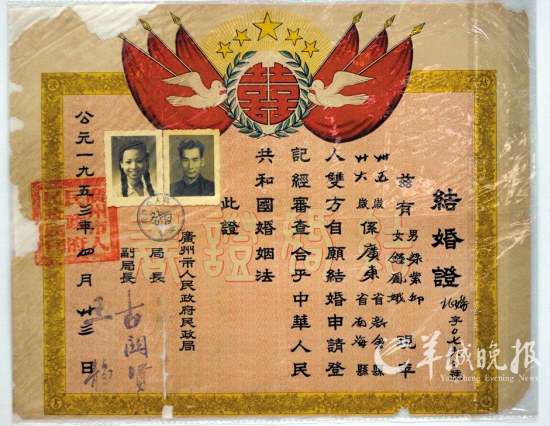 結婚證
字〇七
茲有 男 女 現年
卅五歲 係廣東省新會縣
卅六歲 省南海縣
人雙方自願結婚申請登
記經審查合乎中華人民
共和國婚姻法
此證
廣州市人民政府民政局
局長
副局長
公元一九五三年四月廿三日
羊城晚报
Yangcheng Evening News